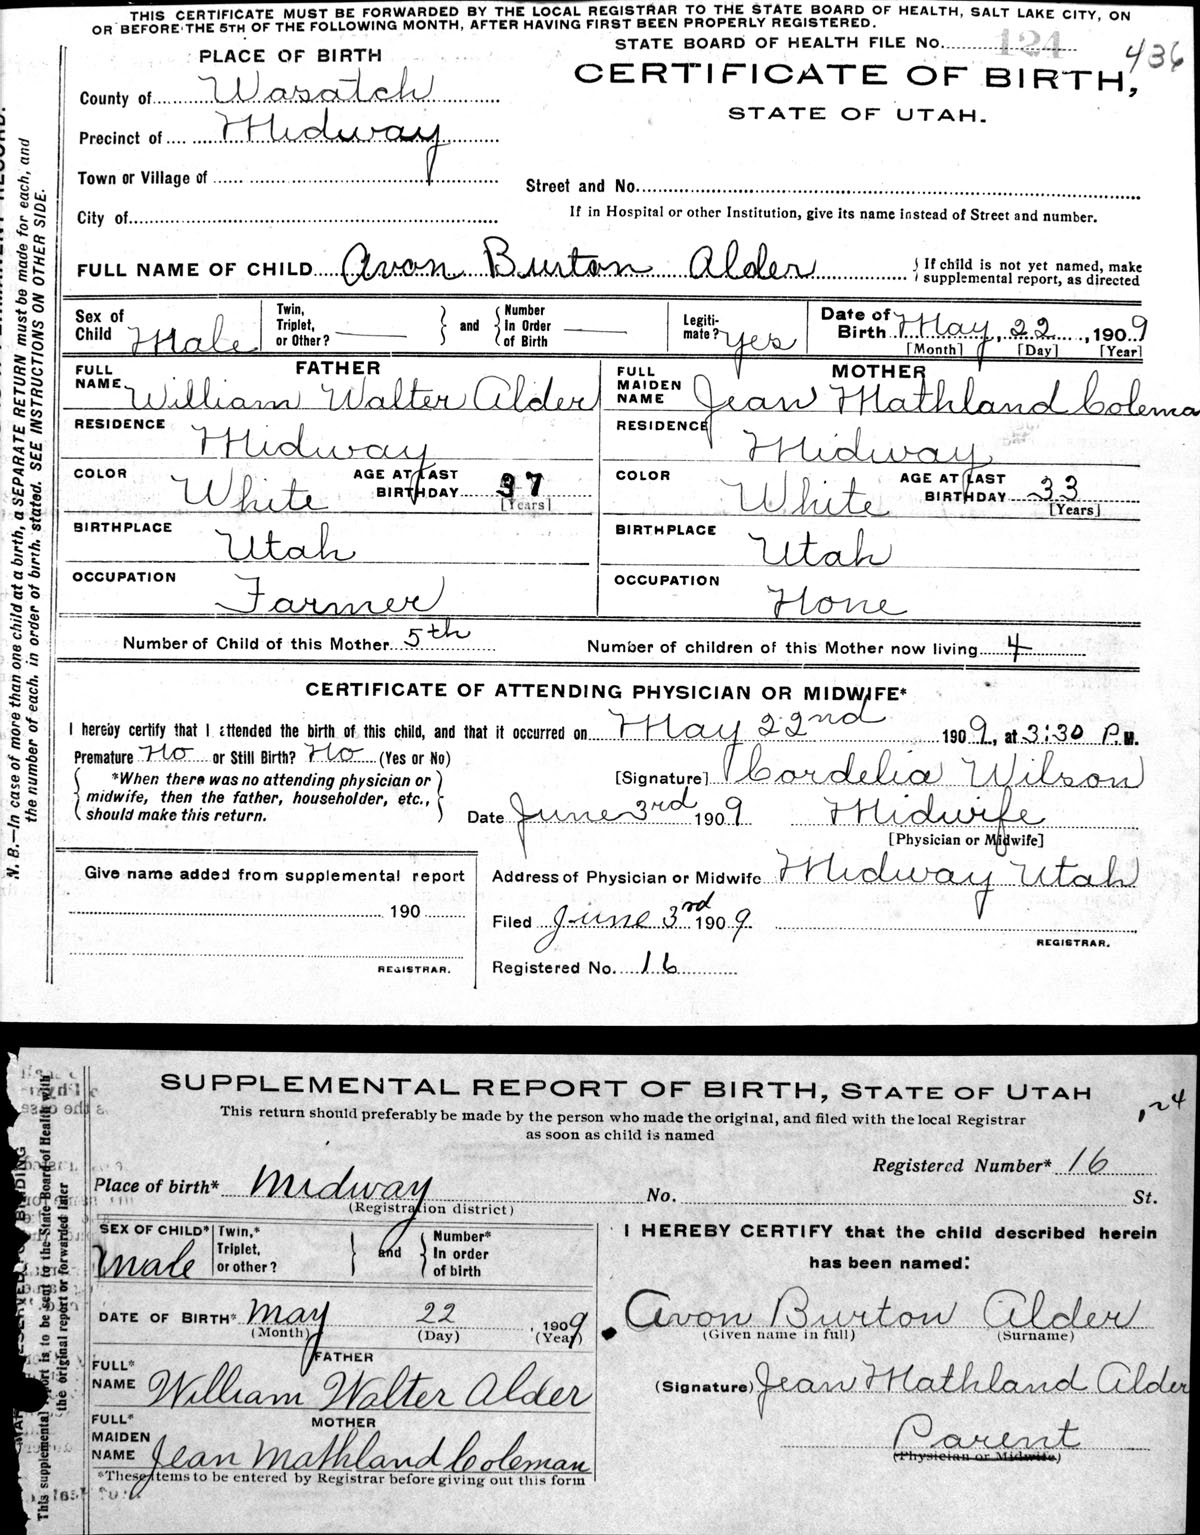 THIS CERTIFICATE MUST BE FORWARDED BY THE LOCAL REGISTRAR TO THE STATE BOARD OF HEALTH, SALT LAKE CITY, ON
OR BEFORE THE 5TH OF THE FOLLOWING MONTH, AFTER HAVING FIRST BEEN PROPERLY REGISTERED.
STATE BOARD OF HEALTH FILE No. 124 436
PLACE OF BIRTH
CERTIFICATE OF BIRTH,
STATE OF UTAH.
County of Wasatch
Precinct of Midway
Town or Village of
Street and No.
City of
If in Hospital or other Institution, give its name instead of Street and number.
FULL NAME OF CHILD Avon Burton Alder { If child is not yet named, make supplemental report, as directed
Sex of Child Male
Twin, Triplet, or Other?
and
Number In Order of Birth
Legitimate? Yes
Date of Birth May, 22, 1909
[Month] [Day] [Year]
FATHER
FULL NAME William Walter Alder
RESIDENCE Midway
COLOR White AGE AT LAST BIRTHDAY 37 [Years]
BIRTHPLACE Utah
OCCUPATION Farmer
MOTHER
FULL MAIDEN NAME Jean Mathland Colema
RESIDENCE Midway
COLOR White AGE AT LAST BIRTHDAY 33 [Years]
BIRTHPLACE Utah
OCCUPATION None
Number of Child of this Mother 5th Number of children of this Mother now living 4
CERTIFICATE OF ATTENDING PHYSICIAN OR MIDWIFE*
I hereby certify that I attended the birth of this child, and that it occurred on May 22nd 1909, at 3:30 P.M.
Premature No or Still Birth? No (Yes or No)
*When there was no attending physician or
midwife, then the father, householder, etc.,
should make this return.
[Signature] Cordelia Wilson
Date June 3rd 1909 Midwife
[Physician or Midwife]
Give name added from supplemental report
190
REGISTRAR.
Address of Physician or Midwife Midway Utah
Filed June 3rd 1909
REGISTRAR.
Registered No. 16
N. B.—In case of more than one child at a birth, a SEPARATE RETURN must be made for each, and
the number of each, in order of birth, stated. SEE INSTRUCTIONS ON OTHER SIDE.
SUPPLEMENTAL REPORT OF BIRTH, STATE OF UTAH
This return should preferably be made by the person who made the original, and filed with the local Registrar
as soon as child is named
124
Registered Number* 16
Place of birth* Midway No. St.
(Registration district)
SEX OF CHILD* Male
Twin,* Triplet, or other?
and
Number* In order of birth
DATE OF BIRTH* May 22, 1909
(Month) (Day) (Year)
FATHER
FULL* NAME William Walter Alder
MOTHER
FULL* MAIDEN NAME Jean Mathland Coleman
*These items to be entered by Registrar before giving out this form
I HEREBY CERTIFY that the child described herein
has been named:
Avon Burton Alder
(Given name in full) (Surname)
(Signature) Jean Mathland Alder
Parent
(Physician or Midwife)
This supplemental report is to be sent to the State Board of Health with
the original report or forwarded later